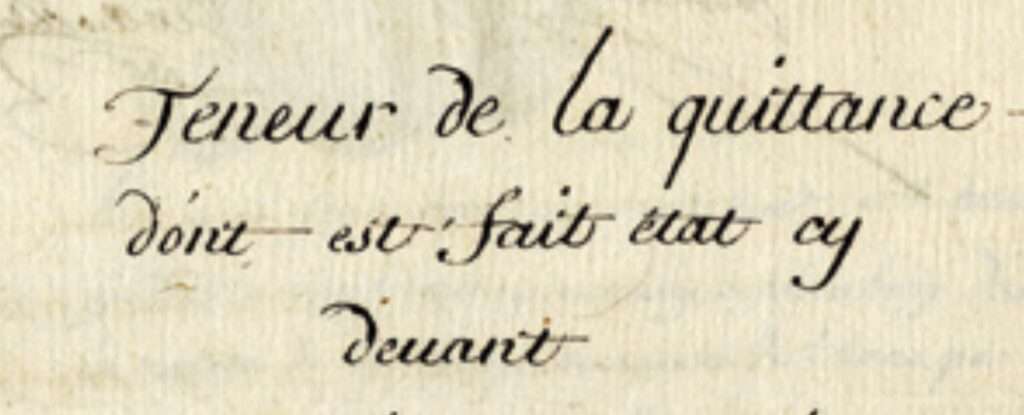 Teneur de la quittance
dont est fait état cy
devant